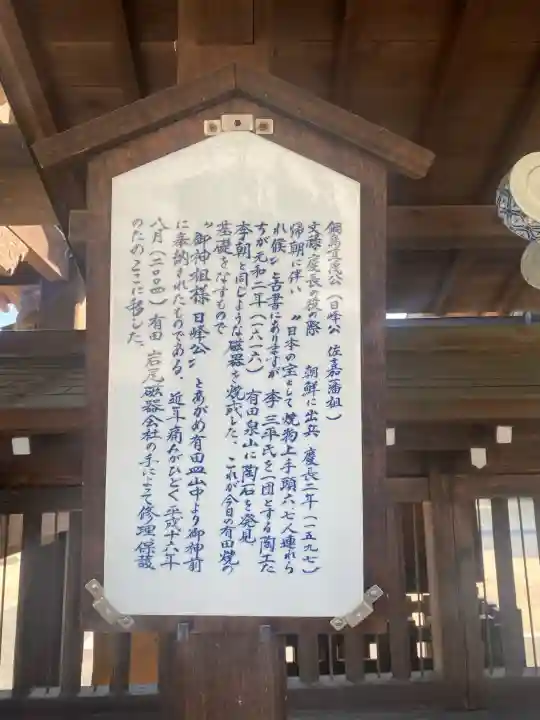 鍋島直茂公(日峰公 佐嘉藩祖)
文禄慶長の役の際 朝鮮に出兵 慶長二年(一五九七)
帰朝に伴い〝日本の宝として焼物上手頭六七人連れら
れ候〟と古書にありますが 李 三平氏を一団とする陶工た
ちが元和二年(一六一六) 有田泉山に陶石を発見
李朝と同じような磁器を焼成した。これが今日の有田焼の
基礎をなすもので
〝御神祖様 日峰公〟とあがめ有田皿山中より御神前
に奉納されたものである。近年痛みがひどく平成十六年
八月(二〇〇四)有田 岩尾磁器会社の手によって修理保護
のためここに移した。